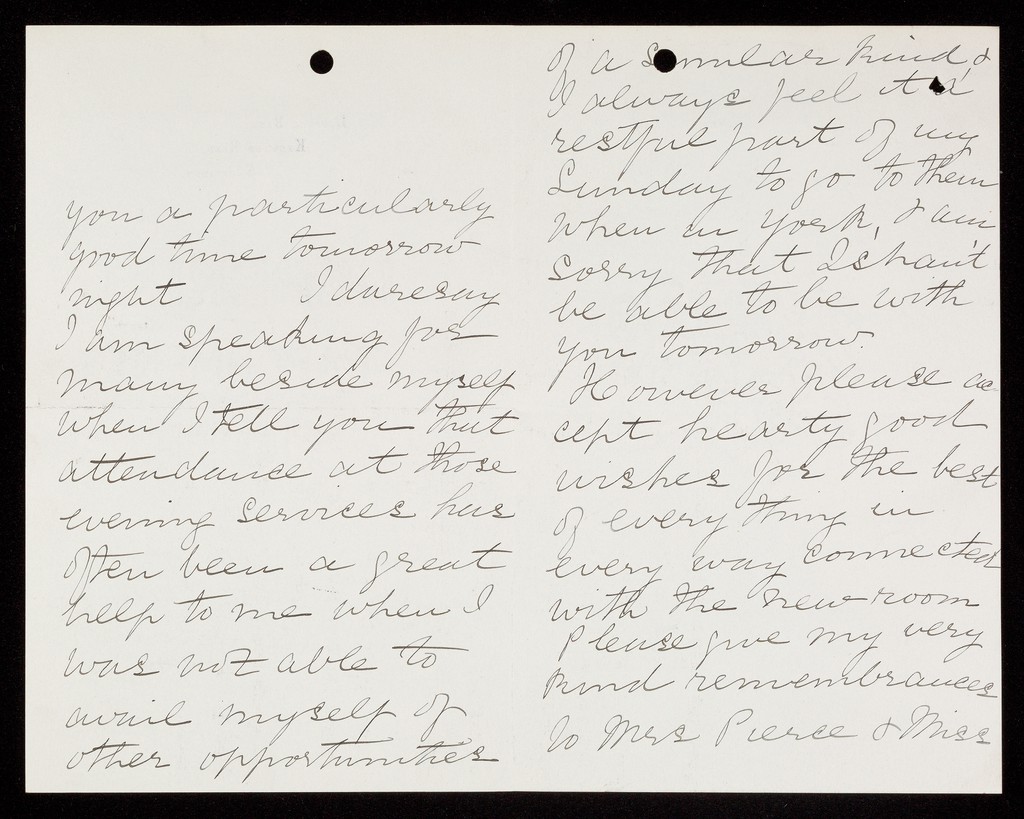 you a particularly
good time tomorrow
night I daresay
I am speaking for
many beside myself
when I tell you that
attendance at those
evening services has
often been a great
help to me when I
was not able to
avail myself of
other opportunities
of a similar kind, &
I always feel it a
restful part of my
Sunday to go to them
when in York, & am
sorry that I shan't
be able to be with
you tomorrow.
However please ac
cept hearty good
wishes for the best
of every thing in
every way connected
with the new room
Please give my very
kind remembrances
to Mrs Pierce & Miss